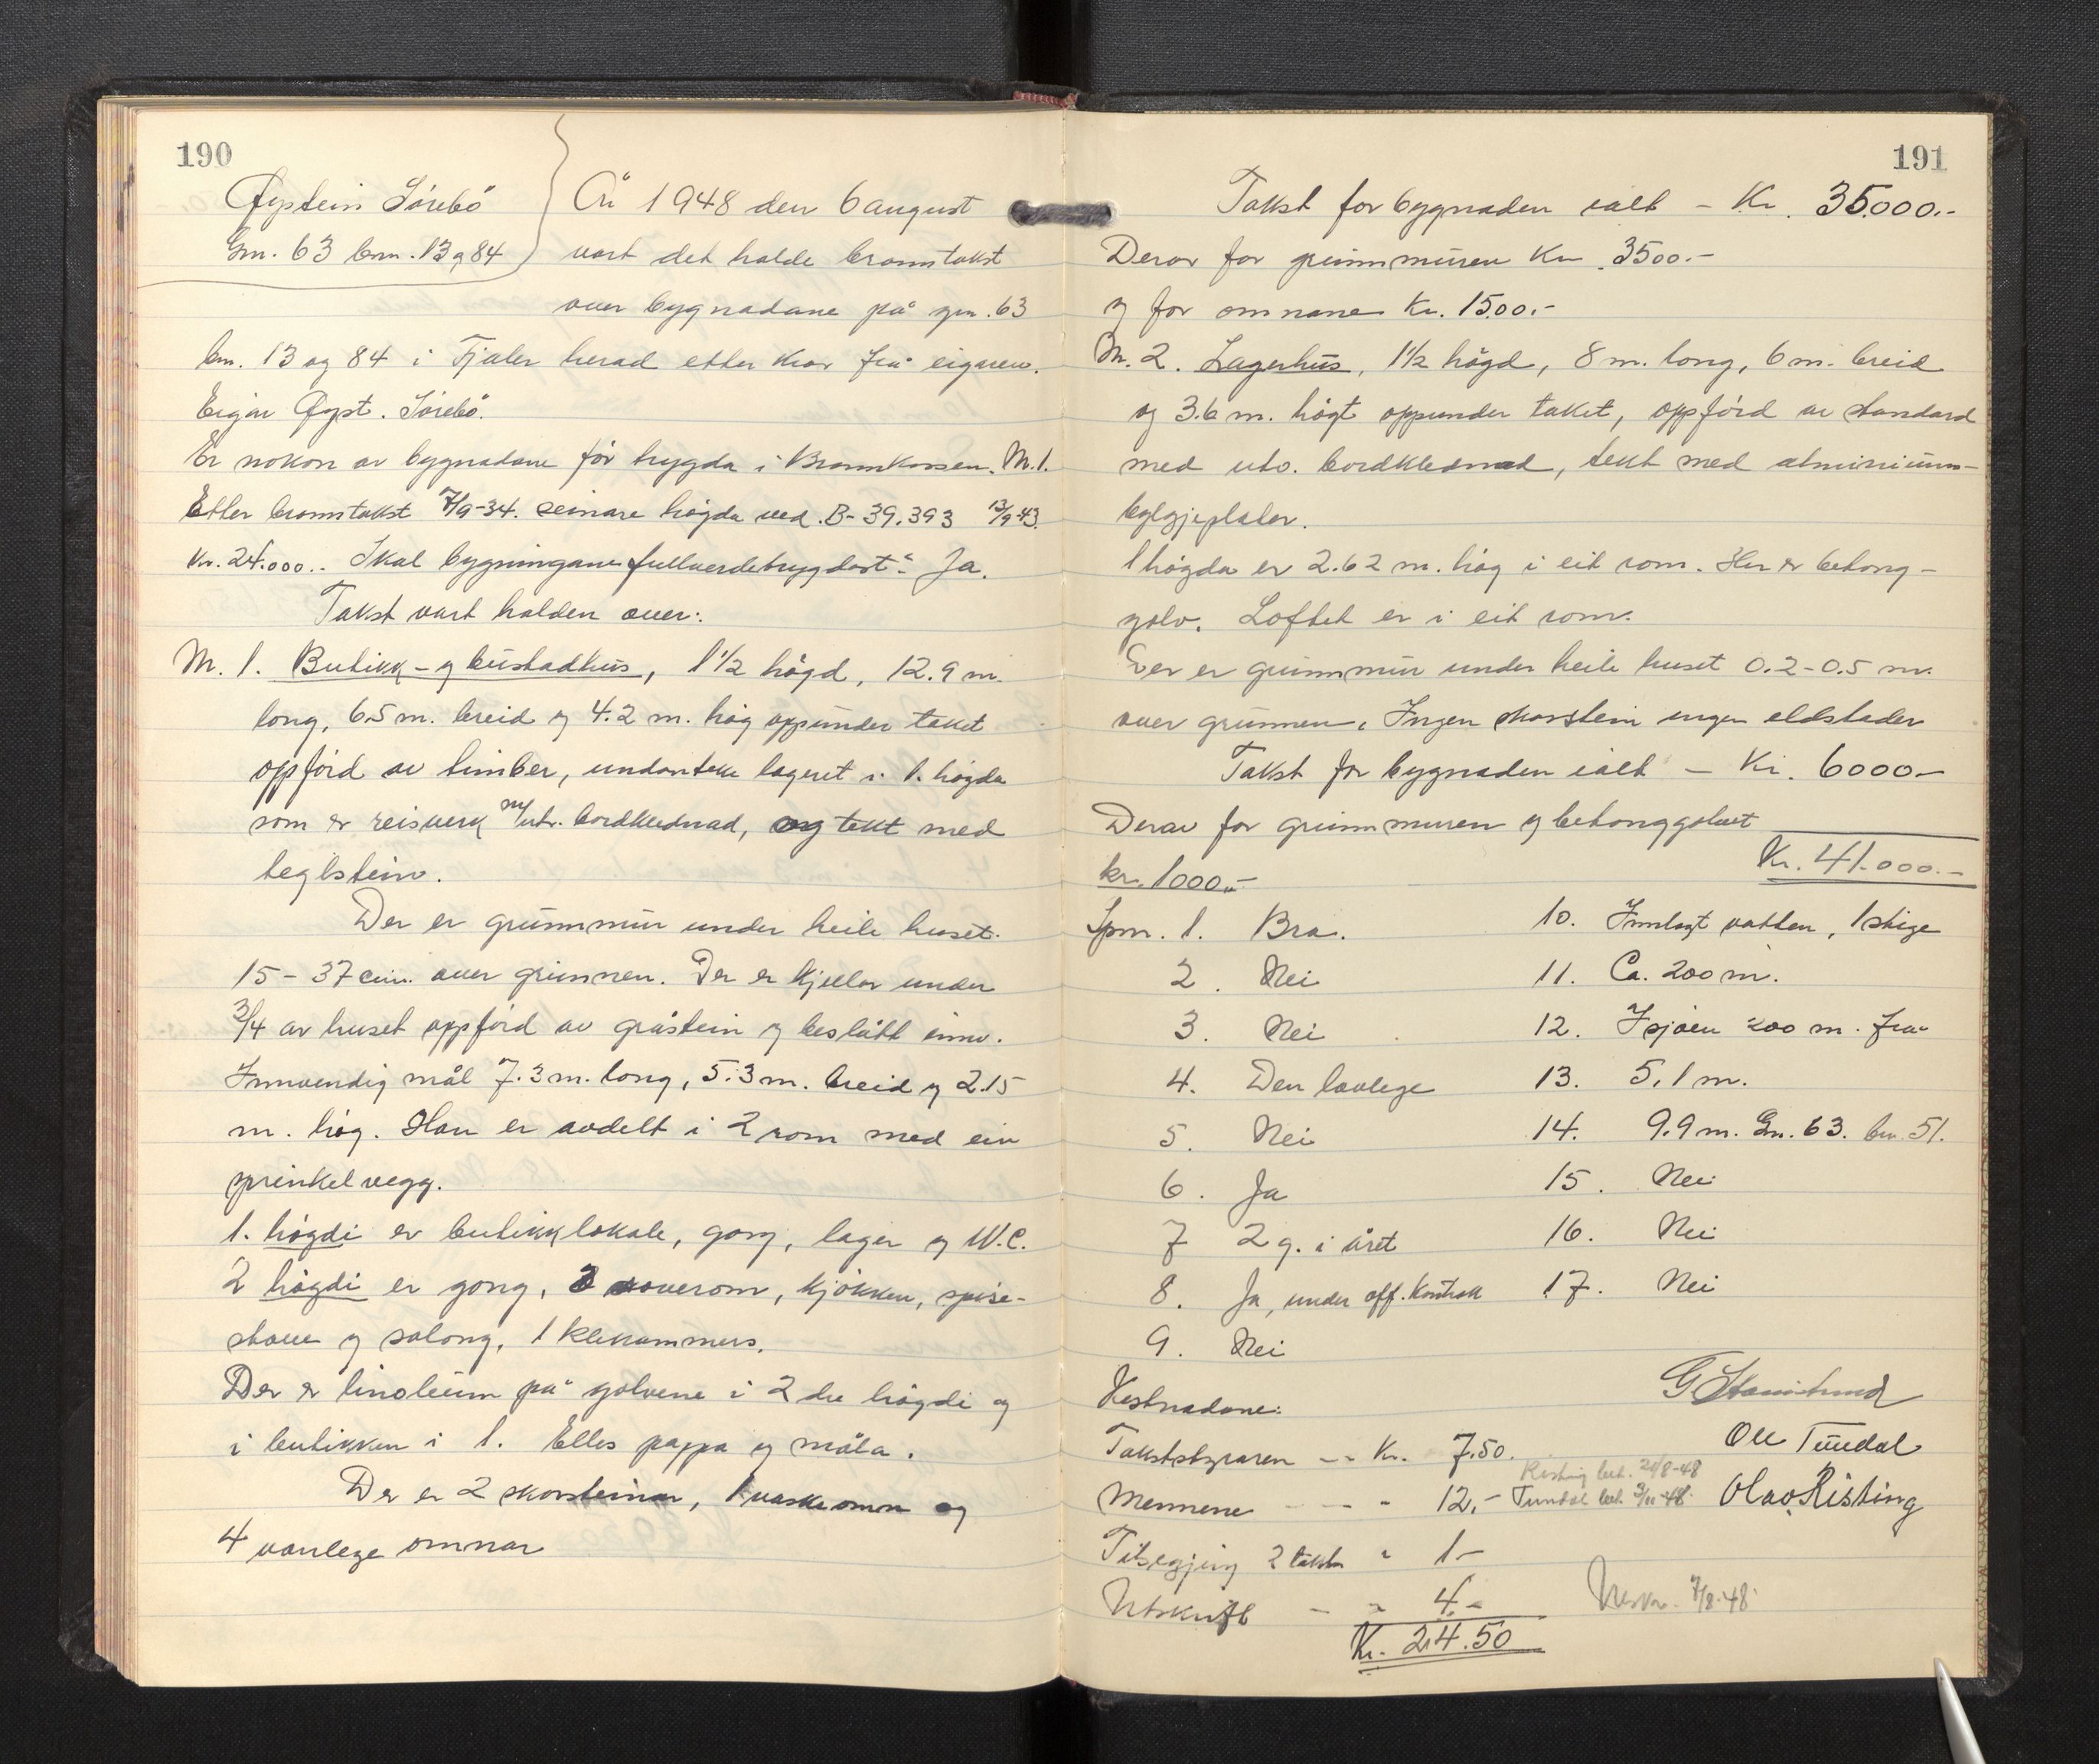 190
Øystein Sörebö
Gnr. 63 bnr. 13 og 84
År 1948 den 6 august
vart det halde branntakst
over bygnadane på gnr. 63
bnr. 13 og 84 i Fjaler herad etter krav frå eigaren.
Eigar Øyst. Sörebö.
Er nokon av bygnadane för trygda i Brannkassen. M.1.
Etter branntakst 7/9-34. seinare högda ved. B-39.393 13/9-43.
Kr. 24.000.. Skal bygningane fullverdetrygdast? Ja.
Takst vart halden over:
M. 1. Butikk- og bustadhus, 1 1/2 högd, 12.9 m.
long, 6.5 m. breid og 4.2 m. häg oppunder taket
oppförd av timber, undanteke lageret i 1. högda
som er reisverk m/utv. bordklednad, og tekt med
teglstein.
Der er grunnmur under heile huset.
15 - 37 cm. over grunnen. Der er kjellar under
3/4 av huset oppförd av gråstein og beslått innv.
Innvendig mål 7.3 m. long, 5.3 m. breid og 2.15
m. häg. Han er avdelt i 2 rom med ein
sprinkelvegg.
1. högdi er butikklokale, gang, lager og W.C.
2 högdi er gong, 3 soverom, kjökken, spise-
stove og salong, 1 klekammers.
Der er linoleum på golvene i 2 dre högdi og
i butikken i 1. Elles pappa og måla.
Der er 2 skorsteinar, 1 vaskeomn og
4 vanlege omnar
191
Takst for bygnaden ialt - Kr. 35.000.-
Derav for grunnmuren Kr. 3500.-
og for omnane Kr. 1500.-
M. 2. Lagerhus, 1 1/2 högd, 8 m. long, 6 m. breid
og 3.6 m. högt oppunder taket, oppförd av standard
med utv. bordklednad, tekt med aluminium-
bylgjeplater.
1 högda er 2.62 m. häg i eit rom. Her er betong-
golv. Loftet er i eit rom.
Der er grunnmur under heile huset 0.2 - 0.5 m.
over grunnen. Ingen skorstein ingen eldstader
Takst for bygnaden ialt - Kr. 6000.-
Derav for grunnmuren og betonggolvet
kr. 1000.-
Kr. 41.000.-
Spm. 1. Bra.
2. Nei
3. Nei
4. Den lovlege
5. Nei
6. Ja
7 2 g. i året
8. Ja, under off. kontroll
9. Nei
10. Innlagt vatten, 1 stige
11. Ca. 200 m.
12. I sjöen 200 m. frå
13. 5,1 m.
14. 9.9 m. Gnr. 63. bnr. 51.
15. Nei
16. Nei
17. Nei
Kostnadane:
Takststyraren - - Kr. 7.50.
Mennene - - - 12.-
Tilsegjing 2 takstm " 1.-
Utskrift - " 4.-
Kr. 24.50
Ole Tundal
Risting bet. 20/8-48
Tundal bet. 3/11-48.
Olav Risting
Utskr. 7/8-48